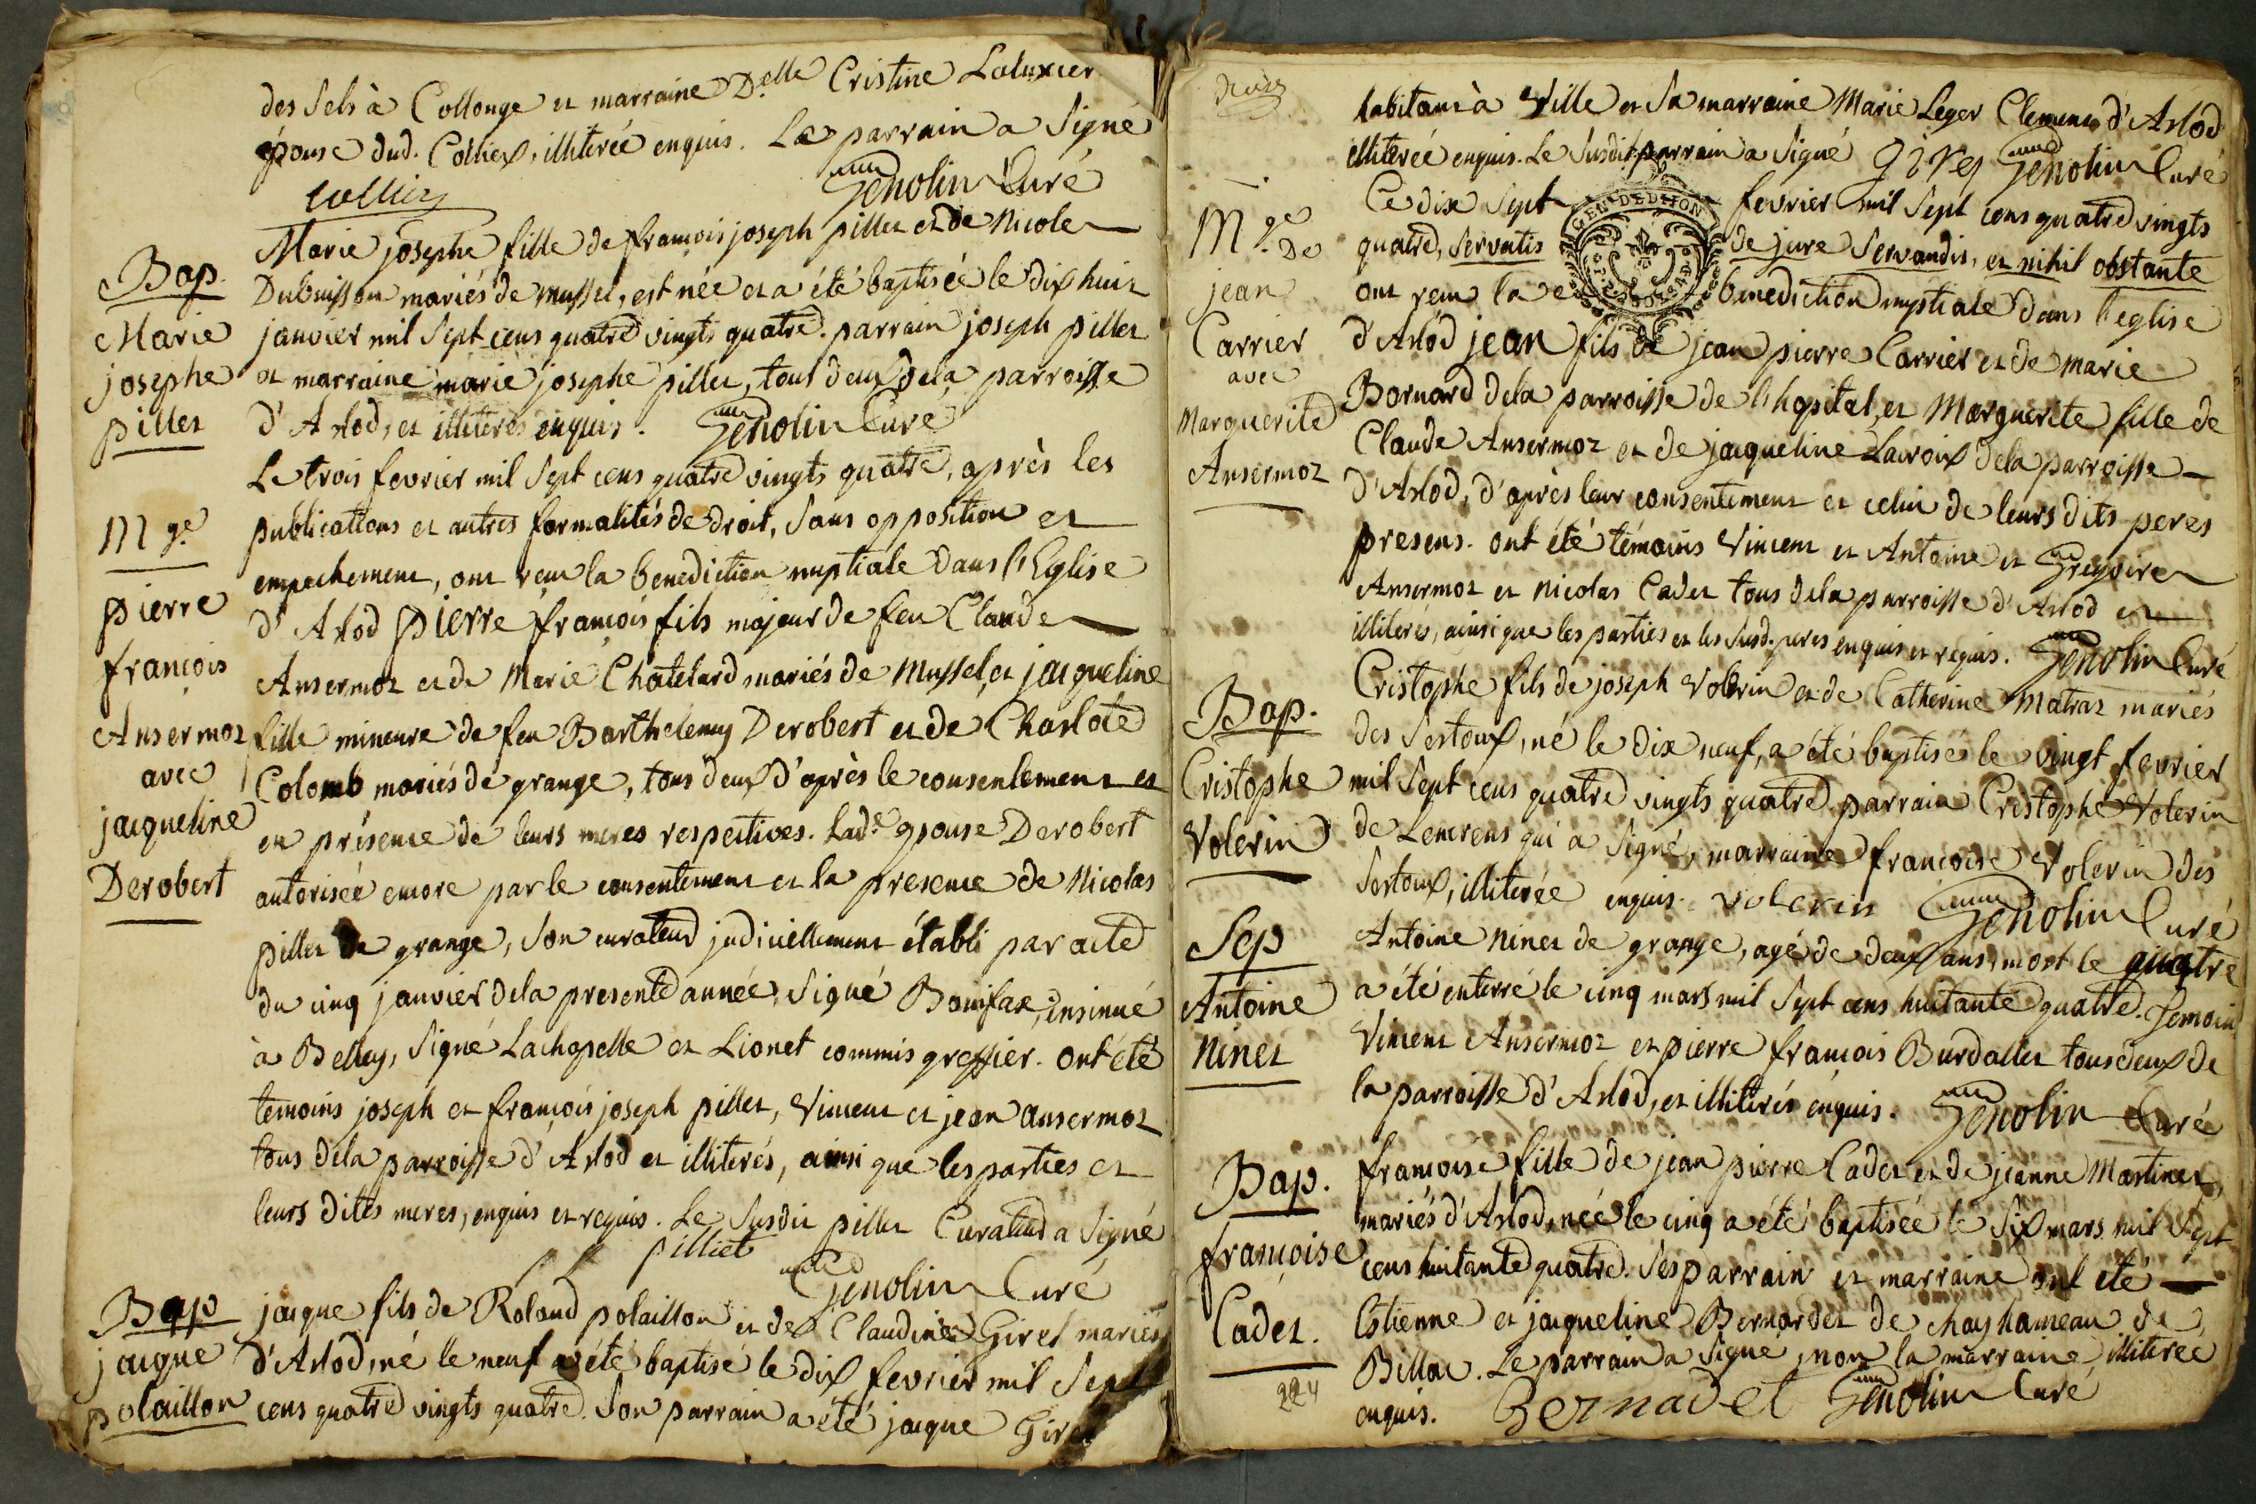 des Sels à Collonge et marraine D.elle Cristine Laluxier
épouse dud. Collier, illiterée enquis. Le parrain a Signé
Collier Genolin Curé
Bap.
Marie
josephe
pillet
Marie josephe fille de françois joseph pillet et de Nicole
Dubuisson mariés de mussel, est née et a été baptisée le dix huit
janvier mil Sept cens quatre vingts quatre. parrain joseph pillet
et marraine marie josephe pillet, tous deux dela parroisse
d'Arlod, et illiterés enquis. Genolin Curé
M.ge
pierre
françois
Ansermoz
avec
jacqueline
Derobert
Le trois fevrier mil Sept cens quatre vingts quatre, après les
publications et autres formalités de droit, Sans opposition et
empechement, ont reçu la benediction nuptiale dans l'Eglise
d'Arlod pierre françois fils majeur de feu Claude
Ansermoz et de Marie Chatelard mariés de Mussel, et jacqueline
fille mineure de feu Barthelemy Derobert et de Charlote
Colomb mariés de grange, tous deux d'après le consentement et
en présence de leurs meres respectives. Lad.e epouse Derobert
autorisée encore par le consentement et la presence de Nicolas
pillet de grange, Son curateur judiciellement établi par acte
du cinq janvier dela presente année, Signé Bonifax, insinué
à Belley, Signé Lachapelle et Lionet commis greffier. ont été
temoins joseph et françois joseph pillet, Vincent et jean ansermoz
tous dela parroisse d'Arlod et illiterés, ainsi que les parties et
leurs dites meres, enquis et requis. Le Susdit pillet Curateur a Signé
pilliet Genolin Curé
Bap
jacque
polaillon
jacque fils de Roland polaillon et de Claudine Giret mariés
d'Arlod, né le neuf a été baptisé le dix fevrier mil Sept
cens quatre vingts quatre. Son parrain a été jacque Giret
habitant à Ville et Sa marraine Marie Leger Clement d'Arlod
illiterée enquis. Le Susdit parrain a Signé Girej Genolin Curé
M.ge De
jean
Carrier
avec
Marguerite
Ansermoz
GEN. D. DIJON
Ce dix Sept fevrier mil Sept cens quatre vingts
quatre, Servatis de jure Servandis, et nihil obstante
ont reçu la benediction nuptiale dans l'eglise
d'Arlod jean fils de jean pierre Carrier et de marie
Bornard dela parroisse de l'hopital, et Marguerite fille de
Claude Ansermoz et de jacqueline Lacroix dela parroisse
d'Arlod, d'après leur consentement et celui de leurs dits peres
presens. ont été témoins Vincent et Antoine et Gregoire
Ansermoz et Nicolas Cadet tous dela parroisse d'Arlod et
illiterés, ainsi que les parties et les Susd. peres enquis et requis. Genolin Curé
Bap.
Cristophe
Volerin
Cristophe fils de joseph Volerin et de Catherine Matraz mariés
des Sertoux, né le dix neuf, a été baptisé le vingt fevrier
mil Sept cens quatre vingts quatre. parrain Cristophe Volerin
de Lencrens qui a Signé, marraine francoise Volerin des
Sertoux, illiterée enquis. volerin Genolin Curé
Sep
Antoine
Ninet
Antoine Ninet de grange, agé de deux ans, mort le quatre
a été enterré le cinq mars mil Sept cens huitante quatre. Temoins
Vincent Ansermoz et pierre françois Burdallet tous deux de
la parroisse d'Arlod, et illiterés enquis. Genolin Curé
Bap.
françoise
Cadet.
françoise fille de jean pierre Cadet et de jeanne Martinet,
mariés d'Arlod, née le cinq a été baptisée le Six mars mil Sept
cens huitante quatre. Ses parrain et marraine ont été
Estienne et jacqueline Bernardet de chay hameau de
Billac. Le parrain a Signé, non la marraine, illiterée
enquis. Bernadet Genolin Curé
224